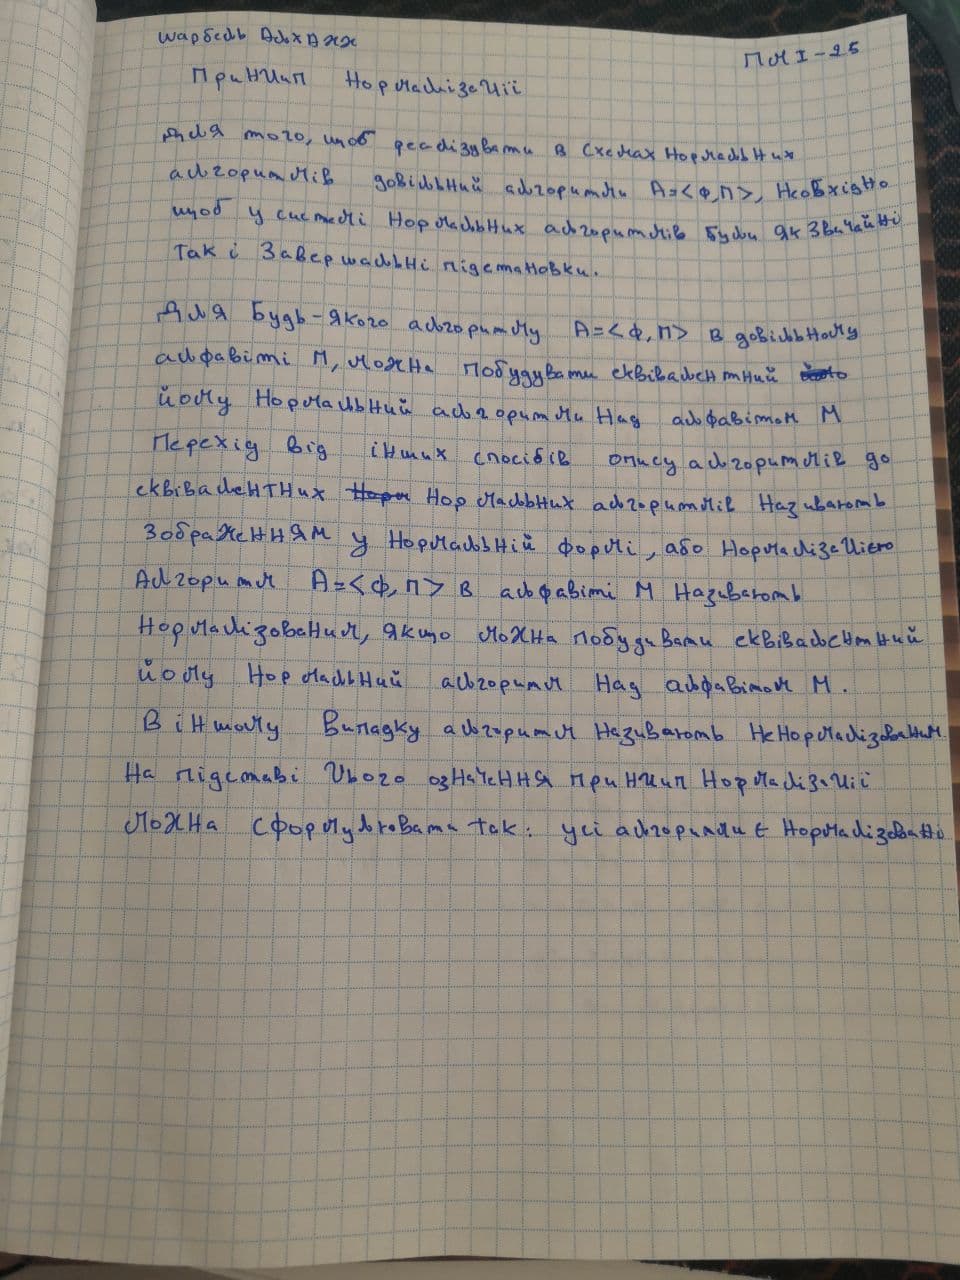 Шарбель АльхАжж
ПМІ-25
Принцип Нормалізації
Для того, щоб реалізувати в Схемах Нормальних
алгоритмів довільний алгоритм A=<Ф,П>, Необхідно
щоб у системі Нормальних алгоритмів були як Звичайні
Так і Завершальні підстановки.
Для Будь-якого алгоритму A=<Ф,П> в довільному
алфавіті М, можна побудувати еквівалентний
йому Нормальний алгоритм Над алфавітом М
Перехід від інших способів опису алгоритмів до
еквівалентних Нормальних алгоритмів Називають
Зображенням у Нормальній формі, або Нормалізацією
Алгоритм A=<Ф,П> в алфавіті М Називають
Нормалізованим, якщо можна побудувати еквівалентний
йому Нормальний алгоритм Над алфавітом М.
В іншому Випадку алгоритм Називають Ненормалізованим.
На підставі Цього означення принцип Нормалізації
можна сформулювати так: усі алгоритми є Нормалізовані